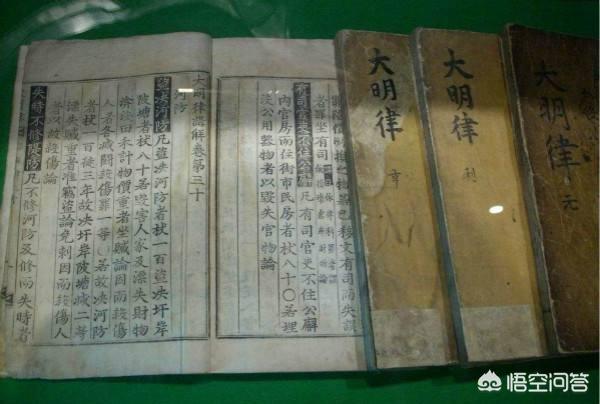 者罪坐有司
有司官吏不住公廨 凡有司官吏不住公廨
內官房而住街市民房者杖八十○若埋
沒公用器物者以毀失官物論
大明律講解卷第三十
河防
盜決河防 凡盜決河防者杖一百盜決圩岸
陂塘者杖八十若毀害人家及漂失財物
渰沒田禾計物價重者坐贓論因而殺傷
人者各減鬪殺傷罪一等○若故決河防
者杖一百徒三年故決圩岸陂塘減二等
漂失贓重者准竊盜論免刺因而殺傷人
者以故殺傷論
失時不修隄防 凡不修河防及修而失時者
大明律
大明律 利
大明律 元
悟空问答